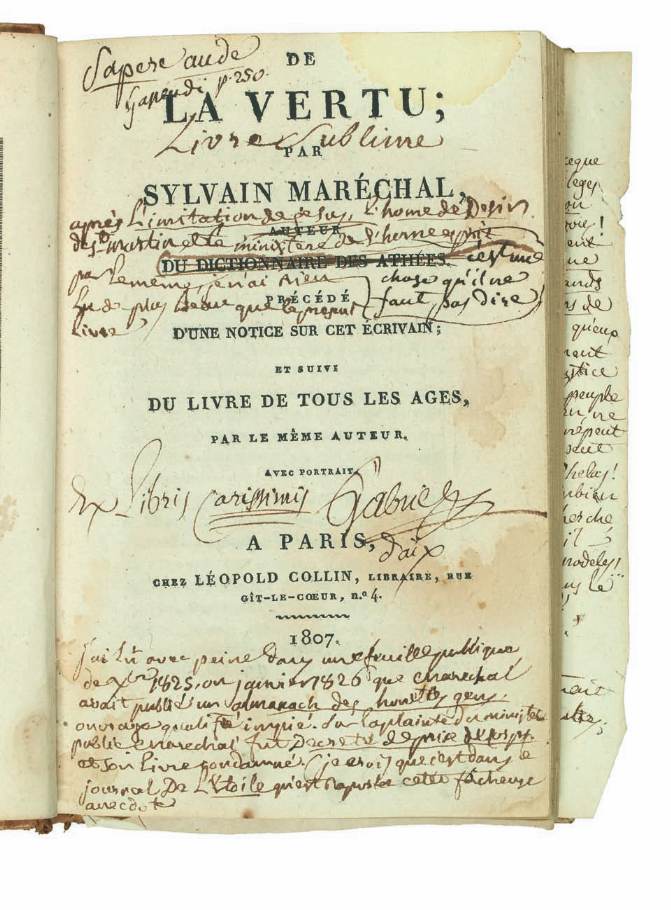 Sapere aude
DE
p. 250.
LA VERTU;
Livre Sublime
PAR
SYLVAIN MARÉCHAL,
après L'imitation de jesus, L'home de Desir
AUTEUR
de St martin et le ministère de L'home esprit
DU DICTIONNAIRE DES ATHÉES.
c'est une
par Le meme, je n'ai rien
chose qu'il ne
PRÉCÉDÉ
Lu de plus beau que le present
faut pas dire
Livre
D'UNE NOTICE SUR CET ÉCRIVAIN;
ET SUIVI
DU LIVRE DE TOUS LES AGES,
PAR LE MÊME AUTEUR.
AVEC PORTRAIT.
Ex Libris Carissimis Gabriel
A PARIS,
d'aix
CHEZ LÉOPOLD COLLIN, LIBRAIRE, RUE
GÎT-LE-CŒUR, N.º 4.
1807.
j'ai Lu avec peine dans une feuille publique
de Xbre 1825, ou janvier 1826 que marechal
avait publié un almanach des honetes gens,
ouvrage qualifié impie. Sur la plainte du ministere
public marechal fut Decreté de prise de corps
et son Livre condamné. (je crois que c'est dans le
journal De L'Etoile qu'est raportée cette facheuse
anecdote
leges
ou
que
ands
rs de
queux
ment
stice
peuple
ne
repent
helas!
mbien
herche
il
modeles,